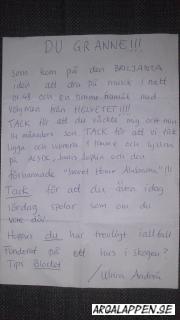 DU GRANNE!!!
som kom på den BRILJANTA
idén att dra på musik i natt
01.48 och en timme framåt med
volymen från HELVETET!!!!
TACK för att du väckte mig och min
14 månaders son. TACK för att vi fick
ligga och vänna 1 timme och lyssna
på ALSOK, Janis Joplin och den
förbannade "Sweet Home Alabama"!!!
Tack för att du även idag
lördag spelar som om du
vore döv.
Hoppas du har trevligt iallafall
Funderat på ett hus i skogen?
Tips Blocket
/Ulrica Andrén
ARGALAPPEN.SE